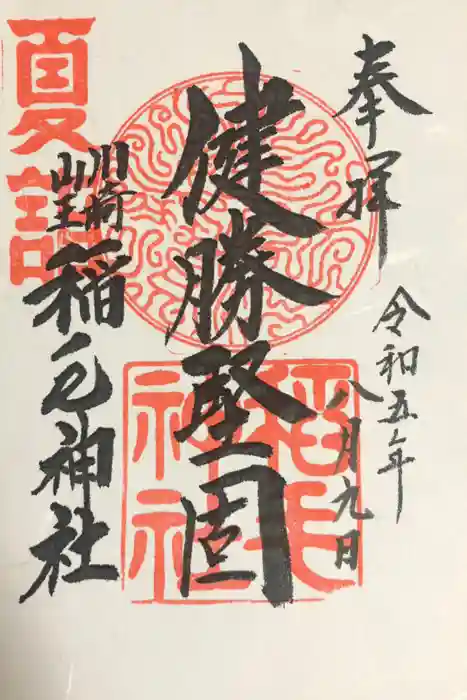 奉拝
令和五年
八月九日
健勝堅固
川崎
山王
稲毛神社
夏詣
稲毛
神社